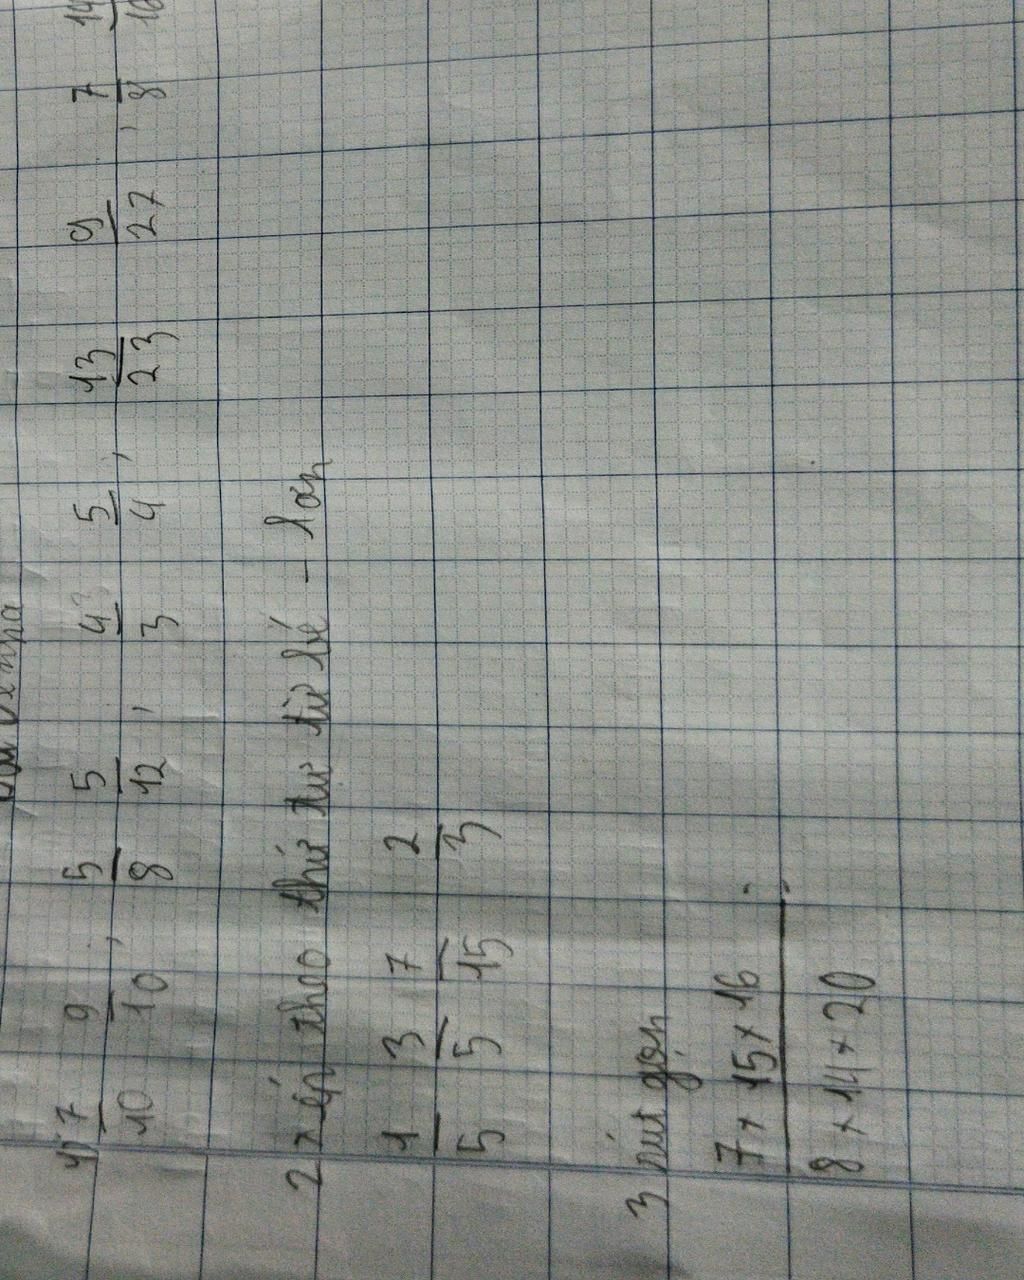 1) 7/10 9/10, 5/8 5/12, 4/3 5/4, 13/23 9/27, 7/8 14/16
2 xếp theo thứ tự từ bé - lớn
1/5 3/5 7/15 2/3
3 rút gọn
7 x 15 x 16
8 x 14 x 20